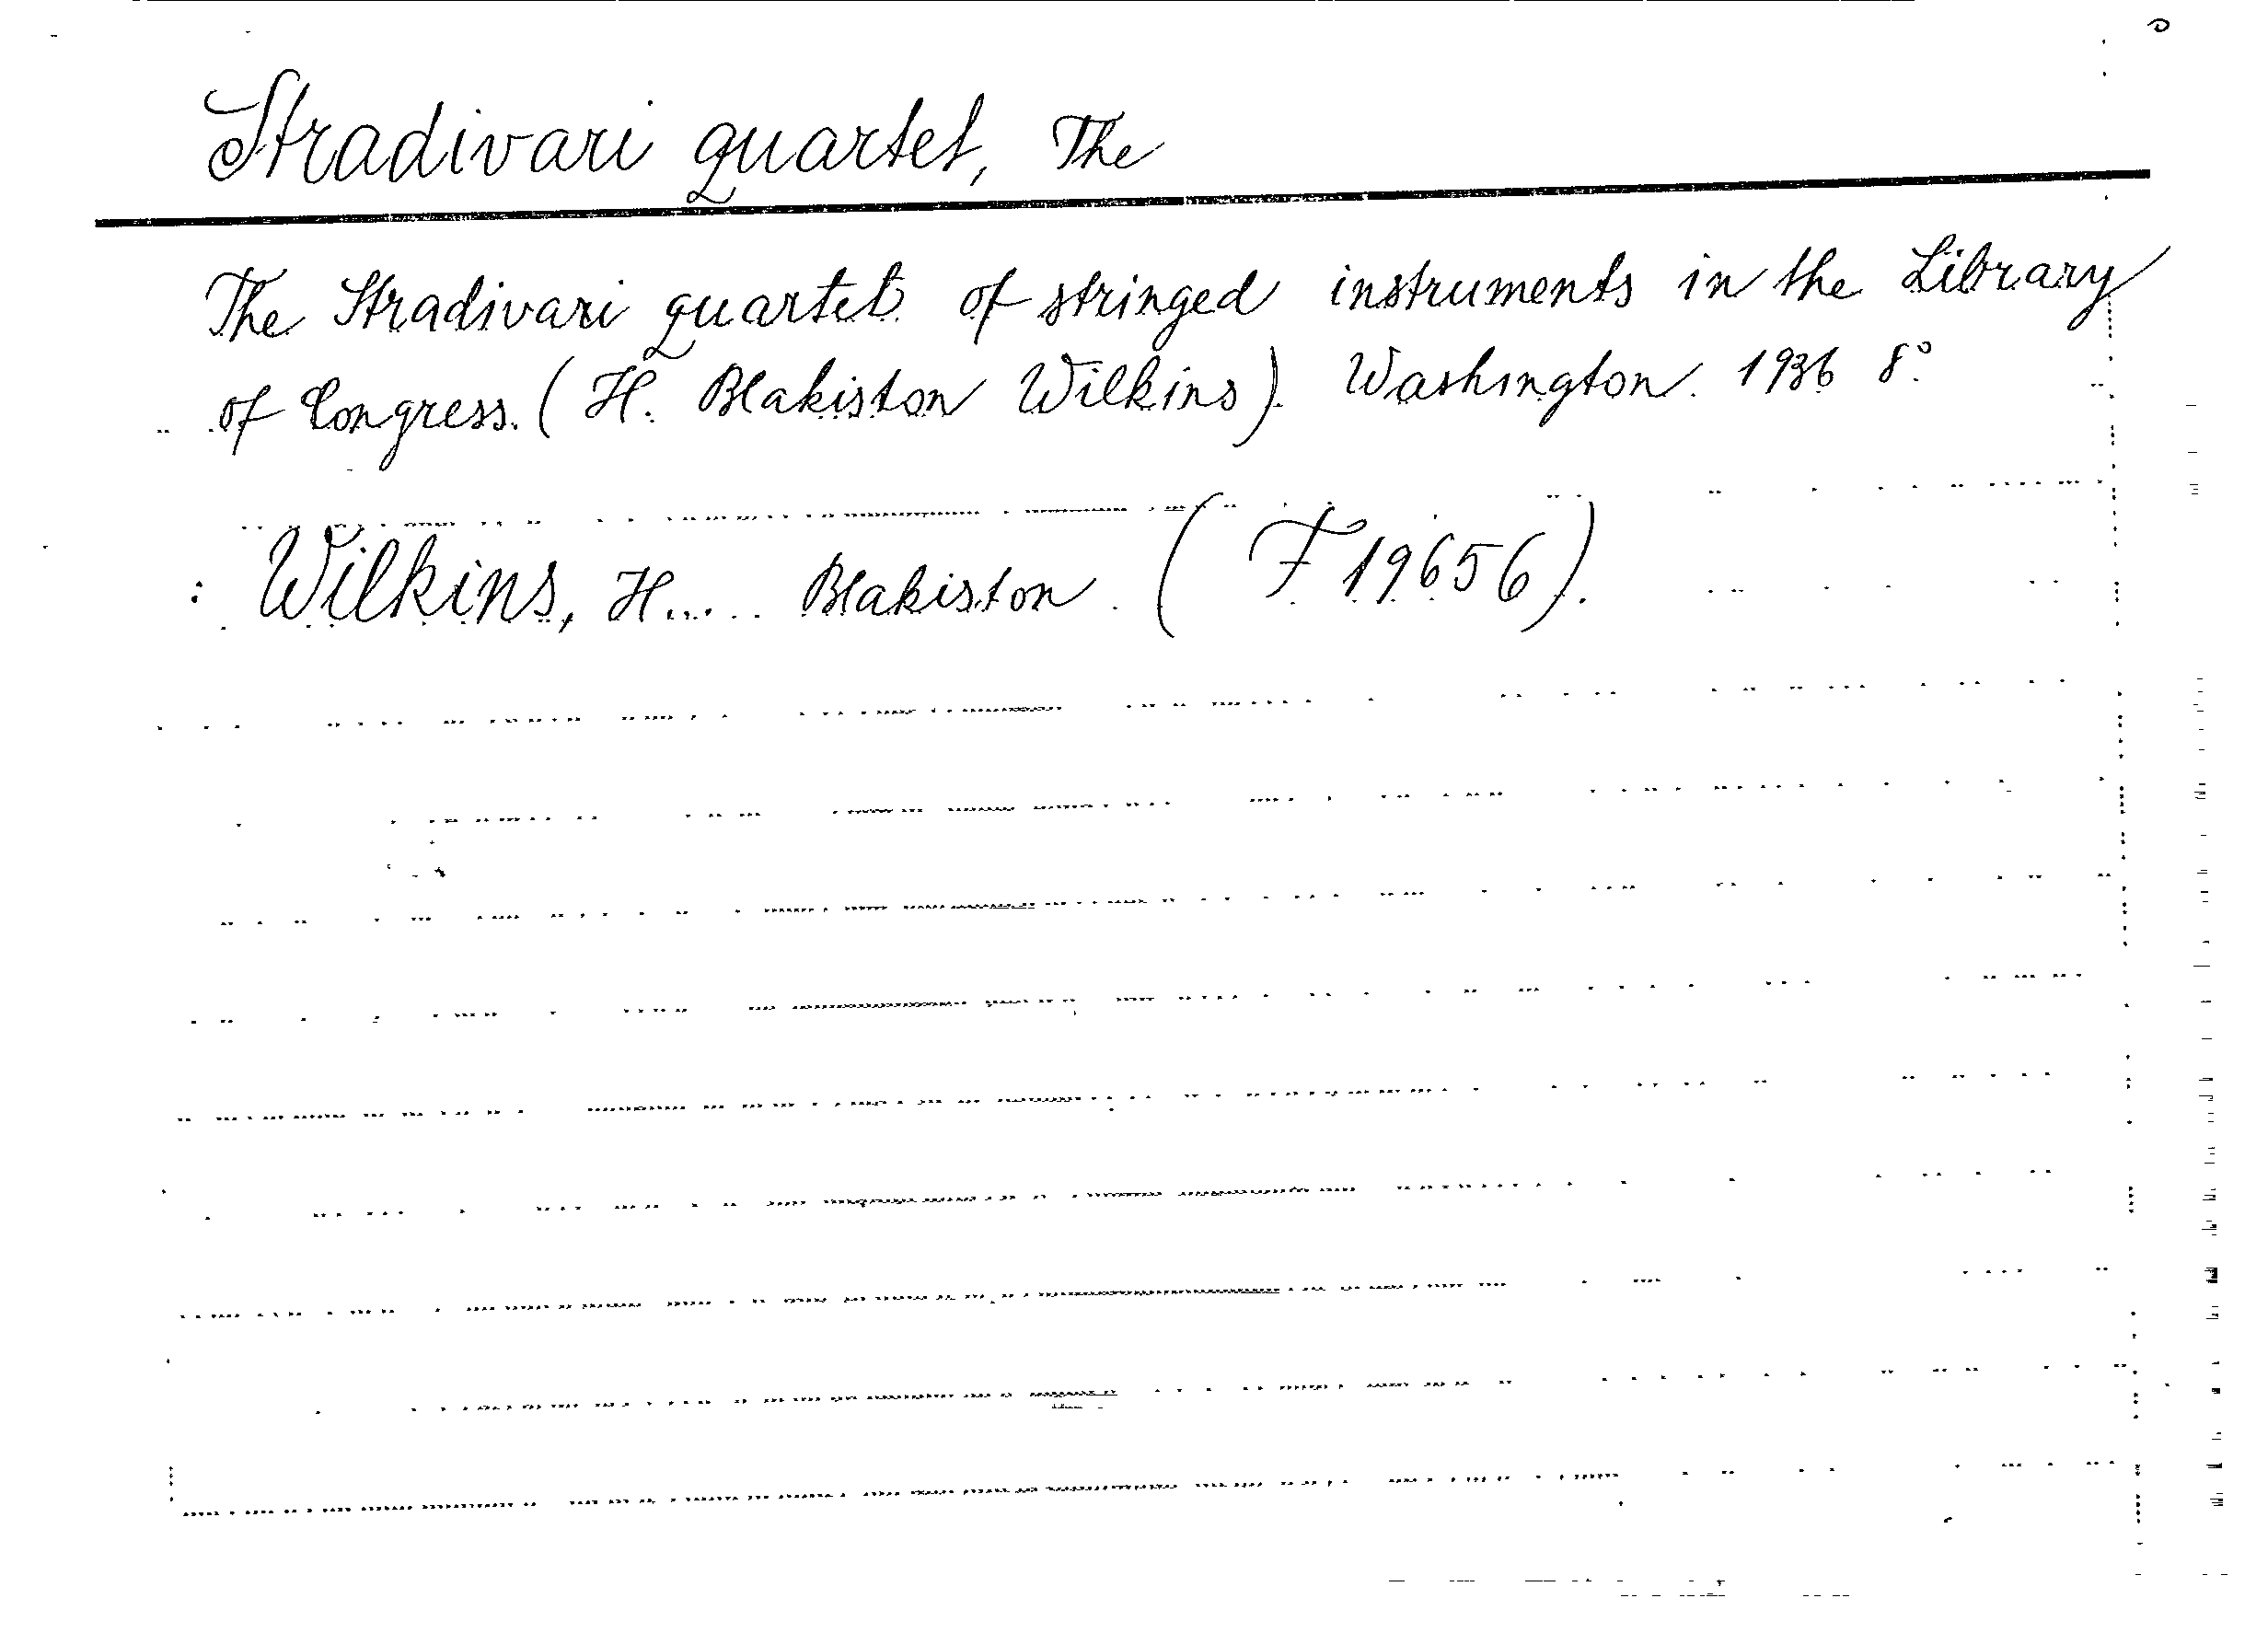 Stradivari quartet, The
The Stradivari quartet of stringed instruments in the Library
of Congress. (H. Blakiston Wilkins). Washington. 1936 8°.
: Wilkins, H..... Blakiston. (F 19656).